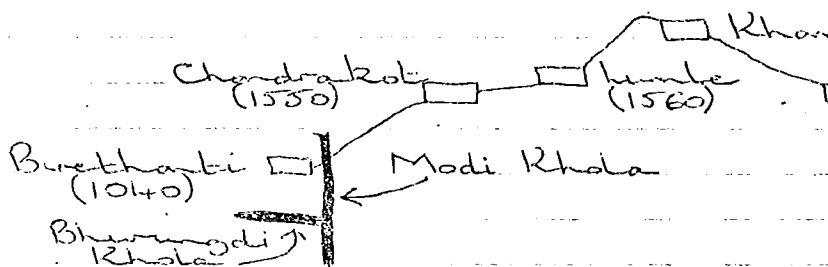 Khar
Chandrakot
(1550)
Lumle
(1560)
Birethanti
(1040)
Modi Khola
Bhurungdi
Khola